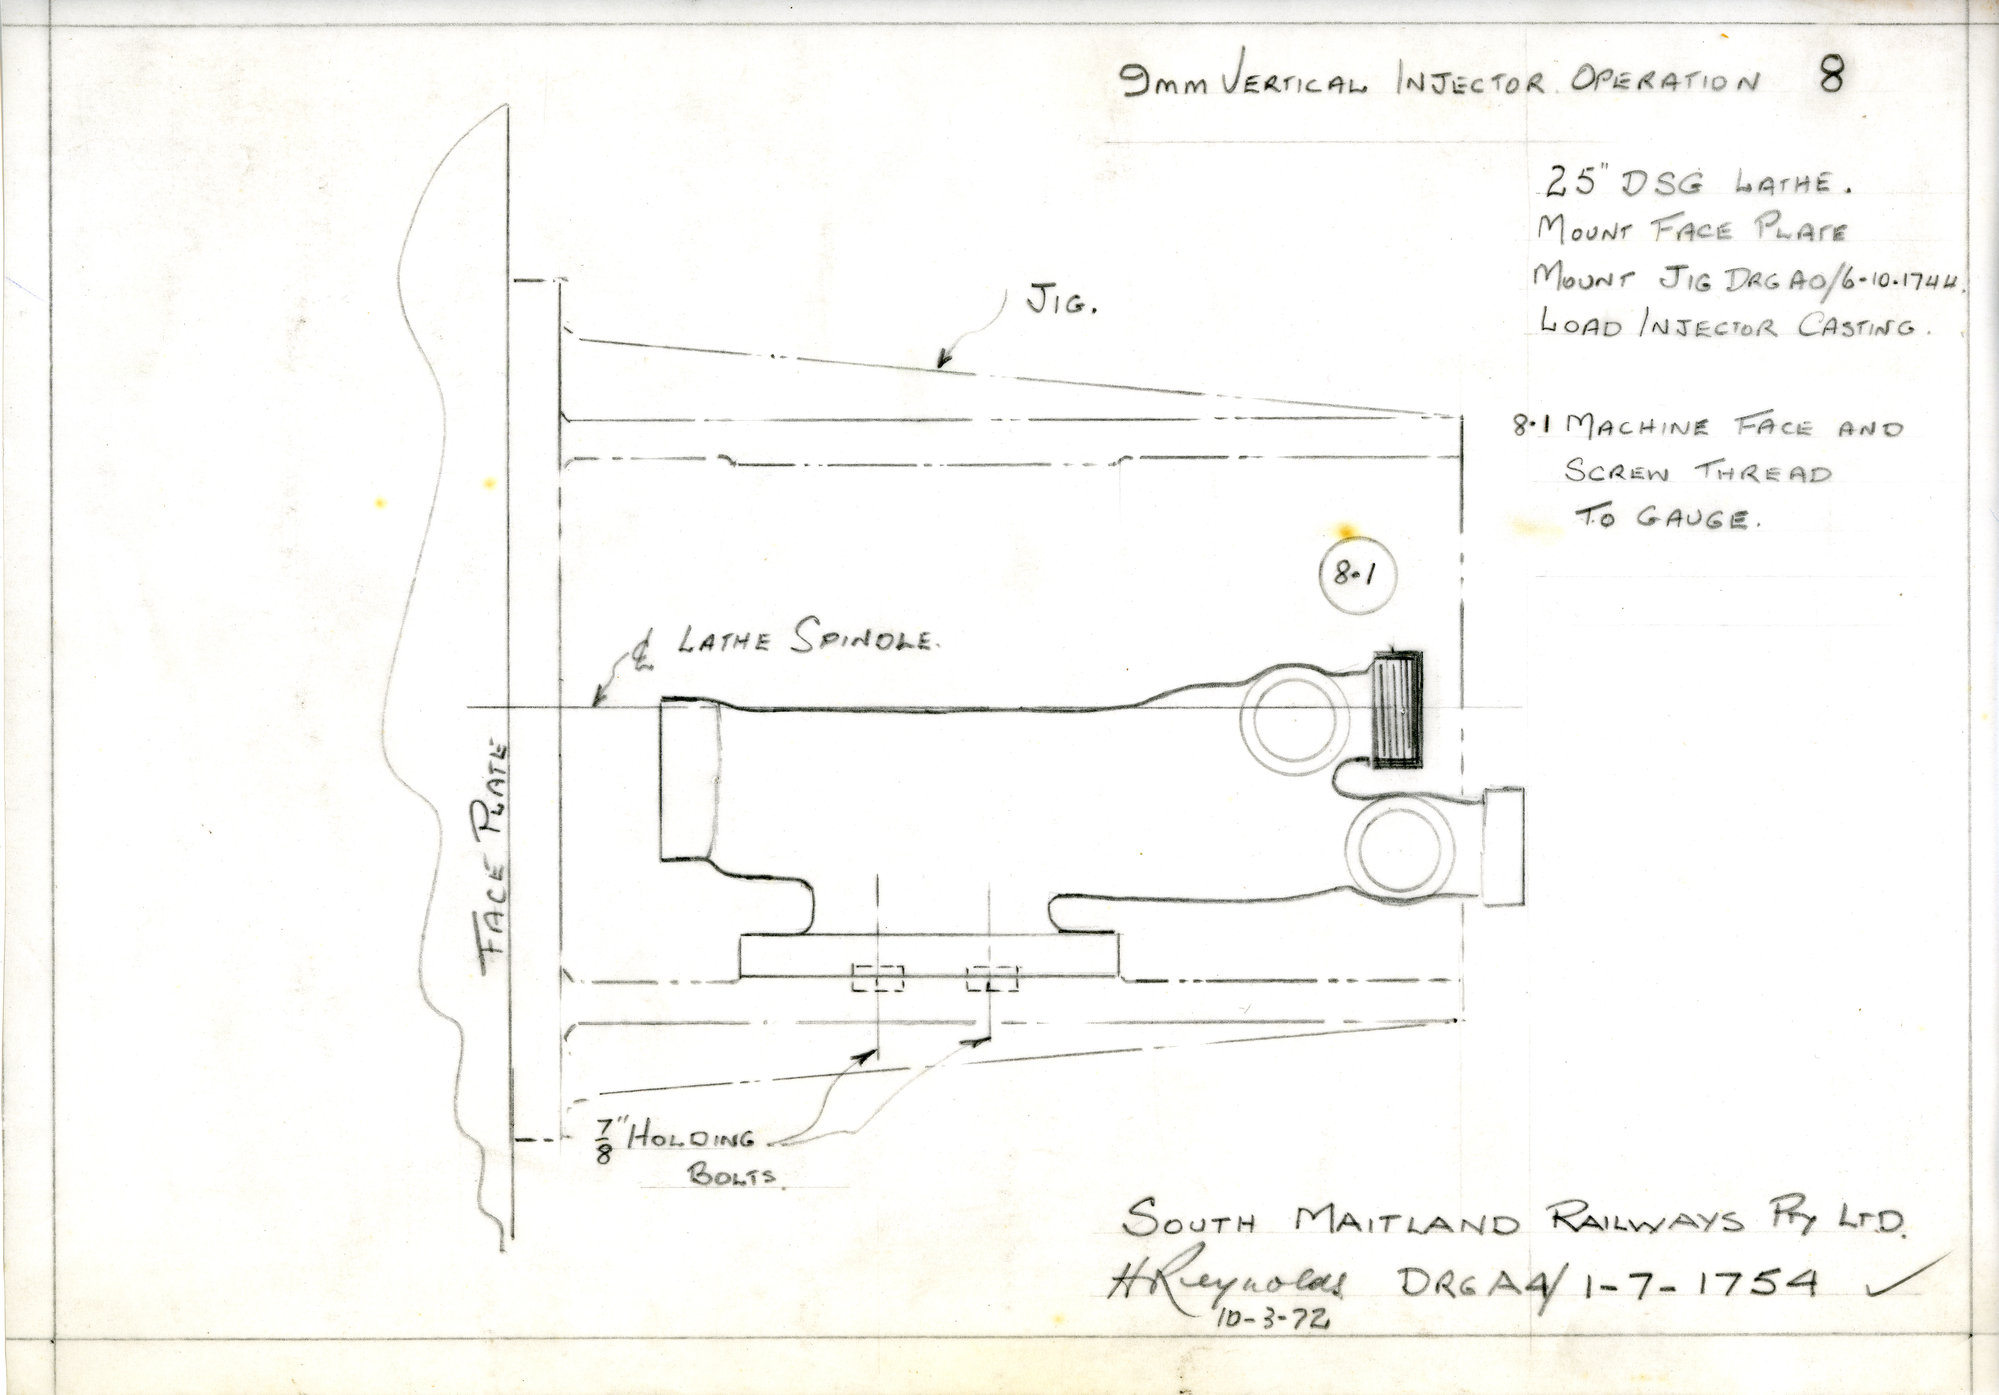 9mm Vertical Injector Operation 8
25" DSG Lathe.
Mount Face Plate
Mount Jig Drg A0/6-10-1744.
Load Injector Casting.
Jig.
8.1 Machine Face and
Screw Thread
To Gauge.
8.1
℄ Lathe Spindle.
Face Plate
7/8" Holding
Bolts.
South Maitland Railways Pty Ltd.
H Reynolds Drg A4/1-7-1754
10-3-72